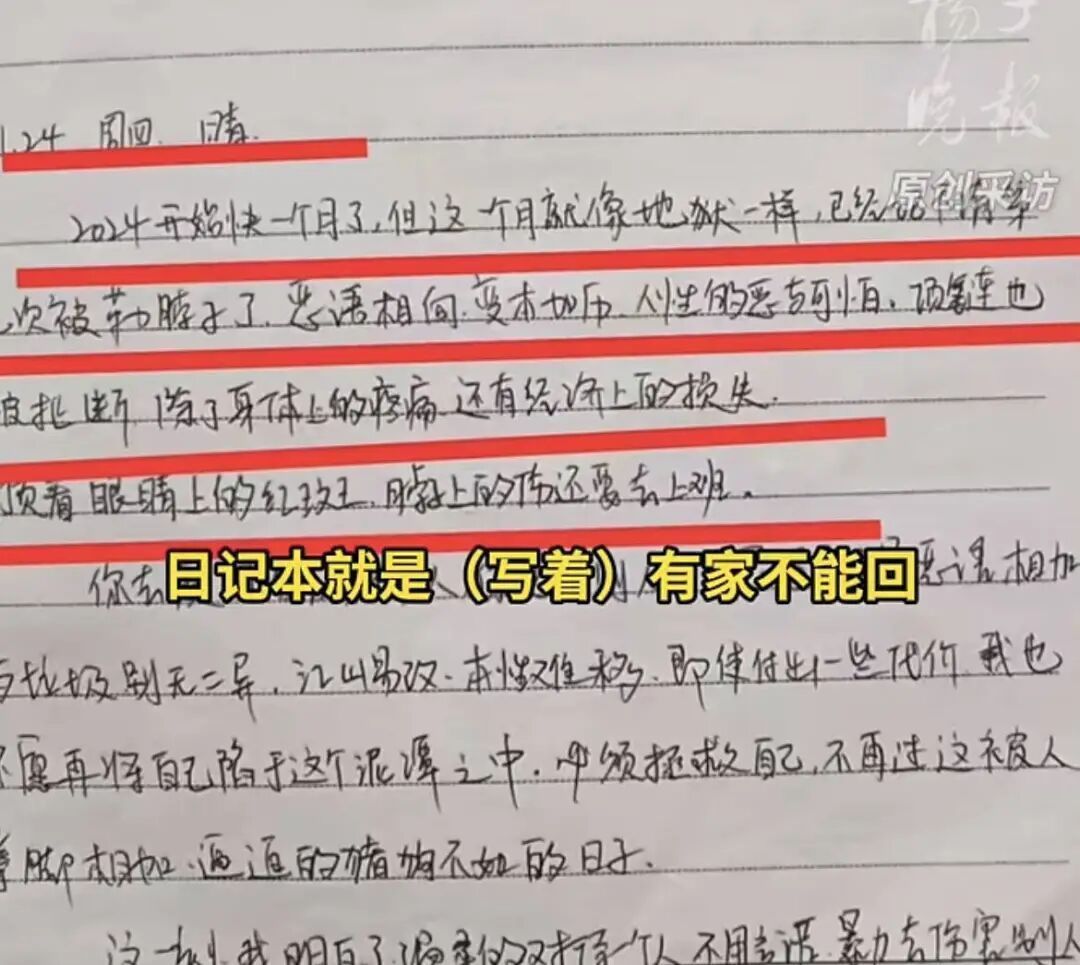 扬子
晚报
原创采访
1.24 周四 晴.
2024开始快一个月了,但这一个月就像地狱一样,已经
次被勒脖子了.恶语相向.变本加厉.人性的恶与可怕.项链也
被扯断 除了身体上的疼痛 还有经济上的损失.
顶着眼睛上的红斑、脖子上的伤还要去上班。
日记本就是（写着）有家不能回
你 恶语相加
与垃圾别无二异.江山易改.本性难移.即使付出一些代价 我也
不愿再将自己陷于这个泥潭之中.必须拯救自己,不再过这被人
拳脚相加.逼逼的猪狗不如的日子.
这一刻我明白了 温柔的对待一个人 不用言语.暴力去伤害别人